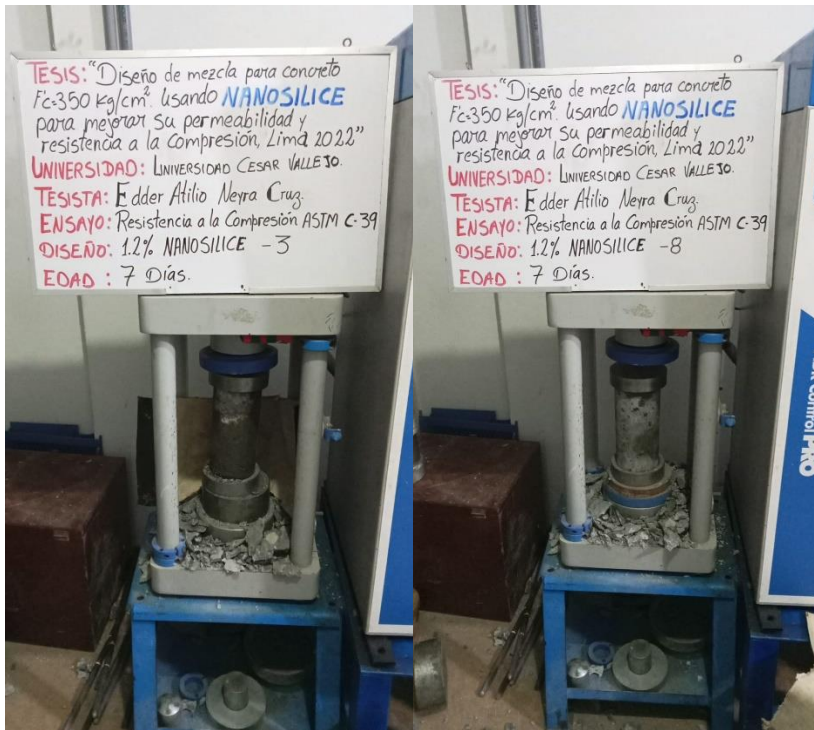 TESIS: "Diseño de mezcla para concreto
F'c=350 kg/cm². Usando NANOSILICE
para mejorar su permeabilidad y
resistencia a la Compresión, Lima 2022"
UNIVERSIDAD: UNIVERSIDAD CESAR VALLEJO.
TESISTA: Edder Atilio Neyra Cruz.
ENSAYO: Resistencia a la Compresión ASTM C-39
DISEÑO: 1.2% NANOSILICE - 3
EDAD : 7 Días.
TESIS: "Diseño de mezcla para concreto
F'c=350 kg/cm². Usando NANOSILICE
para mejorar su permeabilidad y
resistencia a la Compresión, Lima 2022"
UNIVERSIDAD: UNIVERSIDAD CESAR VALLEJO.
TESISTA: Edder Atilio Neyra Cruz.
ENSAYO: Resistencia a la Compresión ASTM C-39
DISEÑO: 1.2% NANOSILICE - 8
EDAD : 7 Días.
Control PRO